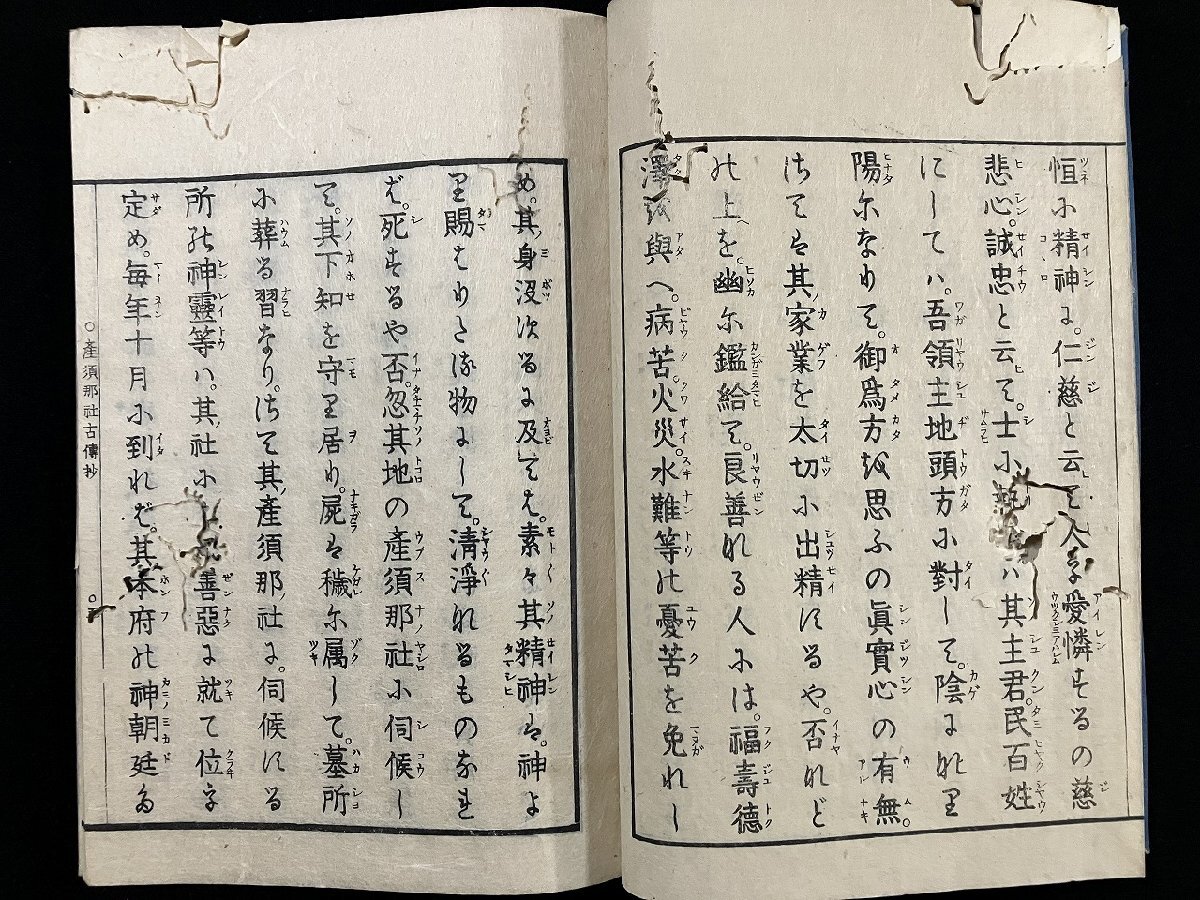 恒に精神に。仁慈と云て人を愛憐するの慈
悲心。誠忠と云て。士に ハ其主君。民百姓
にしてハ。吾領主地頭方に對して。陰になり
陽になりて。御爲方を思ふの眞實心の有無。
さて又其家業を太切に出精するや。否など
の上を。幽に鑑給て。良善なる人には。福壽德
澤を與へ。病苦。火災。水難等の憂苦を免れし
め。其身没するに及ては。素々其精神は。神よ
り賜はりたる物にして。清淨なるものなれ
ば。死するや否。忽其地の產須那社に伺候し
て。其下知を守り居り。屍は穢に属して。墓所
に葬る習なり。さて其產須那社に。伺候する
所の神靈等ハ。其社に 善惡に就て位を
定め。毎年十月に到れば。其本府の神朝廷
○產須那社古傳抄